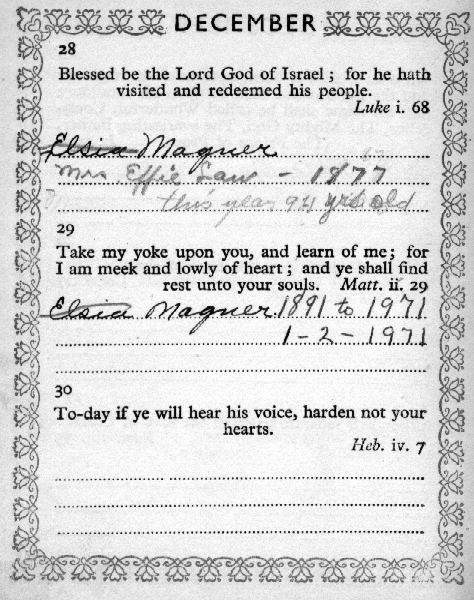 DECEMBER
28
Blessed be the Lord God of Israel ; for he hath
visited and redeemed his people.
Luke i. 68
Elsia Magner
Mrs. Effie Law - 1877
this year 94 yrs old
29
Take my yoke upon you, and learn of me ; for
I am meek and lowly of heart ; and ye shall find
rest unto your souls. Matt. ii. 29
Elsia Magner 1891 to 1971
1-2-1971
30
To-day if ye will hear his voice, harden not your
hearts.
Heb. iv. 7